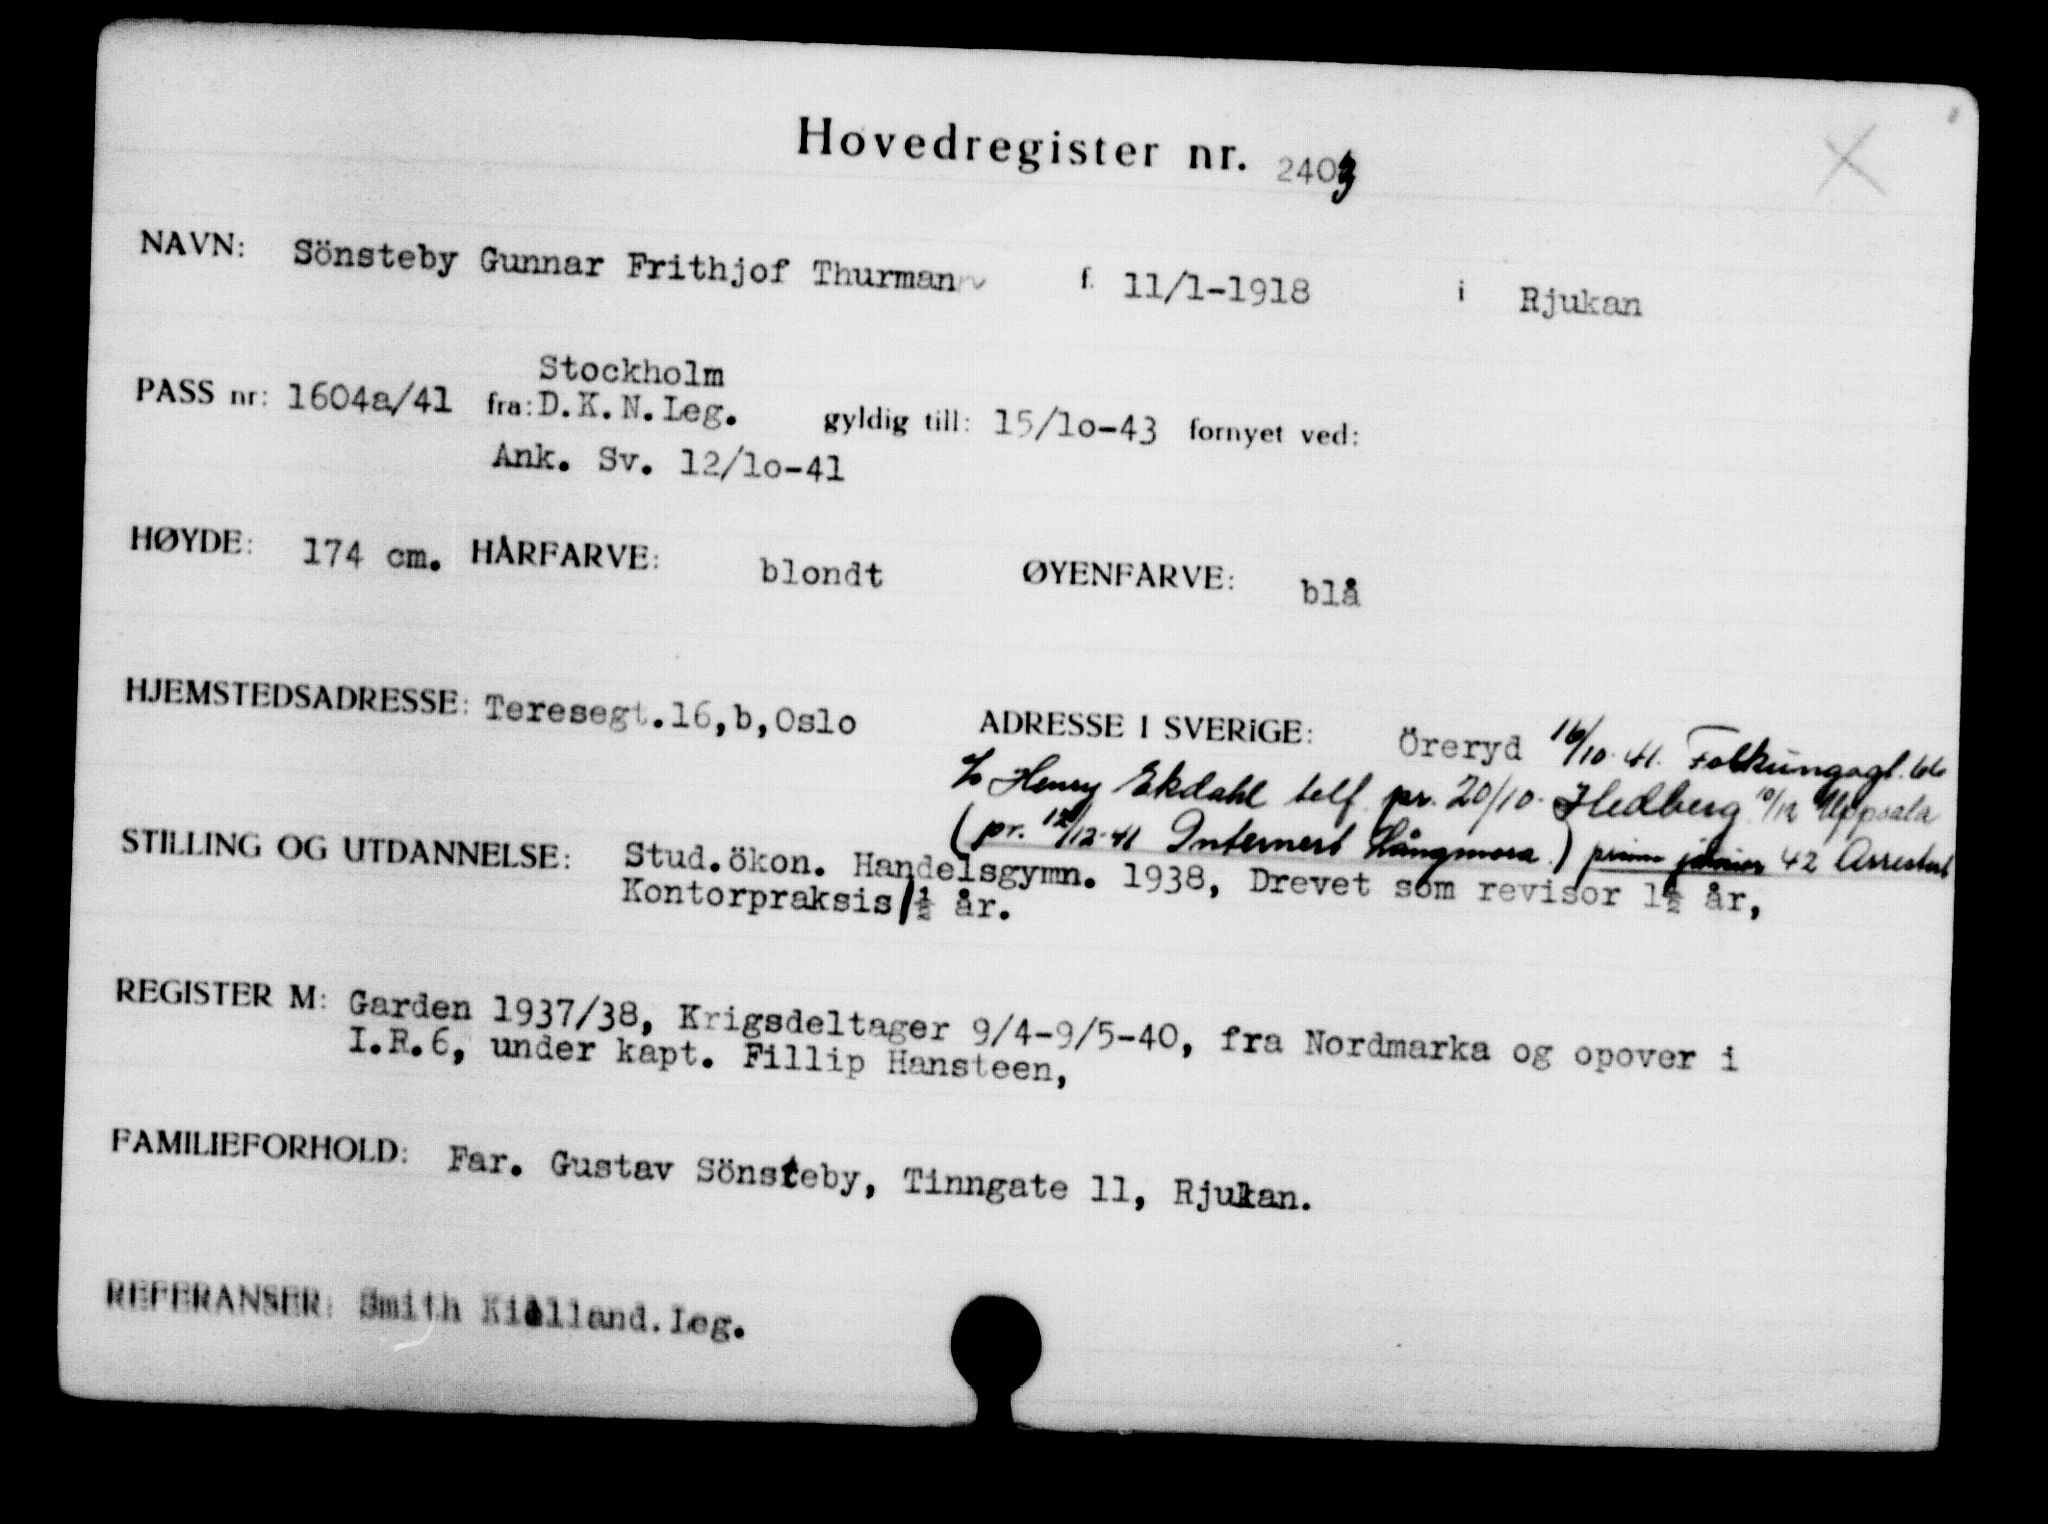 Hovedregister nr. 2403
NAVN: Sönsteby Gunnar Frithjof Thurmann f. 11/1-1918 i Rjukan
Stockholm
PASS nr: 1604a/41 fra: D.K.N.Leg. gyldig till: 15/1o-43 fornyet ved:
Ank. Sv. 12/1o-41
HØYDE: 174 cm. HÅRFARVE: blondt ØYENFARVE: blå
HJEMSTEDSADRESSE: Teresegt.16,b,Oslo ADRESSE I SVERIGE: Öreryd 16/10.41. Folkungagt. 66
c/o Henry Ekdahl telf. pr. 20/10. Hedberg 10/12 Uppsala
(pr. 12/12-41 Internert Långmora.) primo januar 42 Arrestert
STILLING OG UTDANNELSE: Stud.ökon. Handelsgymn. 1938, Drevet som revisor 1½ år,
Kontorpraksis 1½ år.
REGISTER M: Garden 1937/38, Krigsdeltager 9/4-9/5-40, fra Nordmarka og opover i
I.R.6, under kapt. Fillip Hansteen,
FAMILIEFORHOLD: Far. Gustav Sönsteby, Tinngate 11, Rjukan.
REFERANSER: Smith Kielland.Leg.